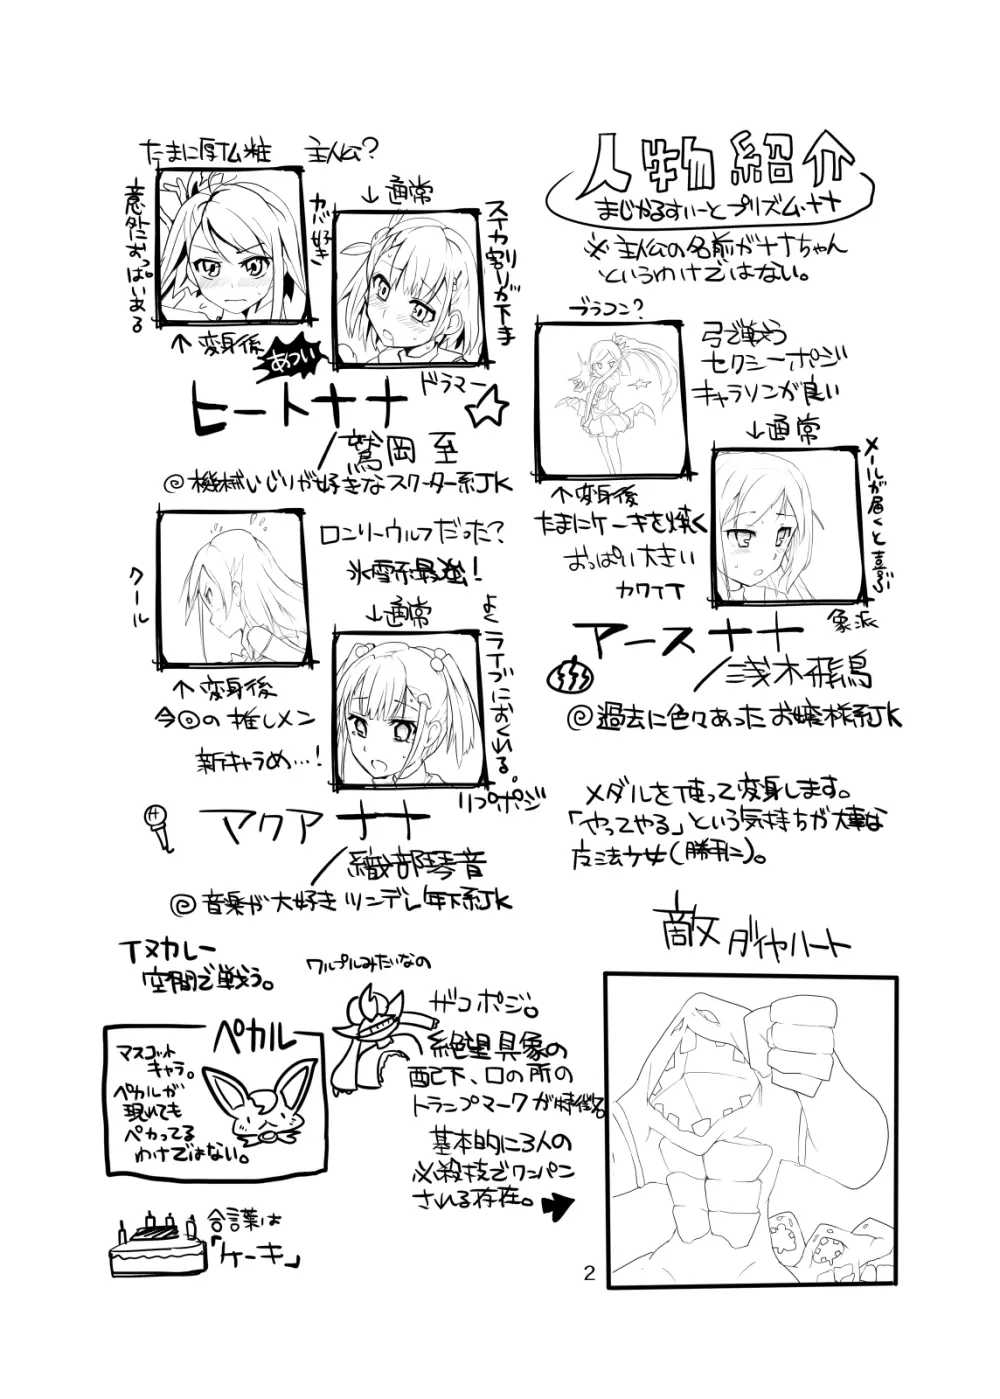 人物紹介
まじかるすいーとプリズム・ナナ
※主人公の名前がナナちゃん
というわけではない。
たまに厚化粧
主人公?
意外におっぱいある
↑変身後
↓通常
カバ好き
スイカ割りが下手
あつい
ドラマー
ヒートナナ
/鷲岡 至
@機械いじりが好きなスクーター系JK
ブラコン?
弓で戦う
セクシーポジ
キャラソンが良い
↓通常
↑変身後
メールが届くと喜ぶ
たまにケーキを焼く
おっぱい大きい
カワイイ
象派
アースナナ
/浅木飛鳥
@過去に色々あったお嬢様系JK
クール
ロンリーウルフだった?
氷雪系最強!
↓通常
よくライブにおくれる。
↑変身後
今回の推しメン
新キャラめ…!
リアポジ
アクアナナ
/織部琴音
@音楽が大好きツンデレ年下系JK
メダルを使って変身します。
「やってやる」という気持ちが大事な
魔法少女(勝利に)。
敵ダイヤハート
イヌカレー
空間で戦う。
ワルプルみたいなの
ザコポジ。
絶望具像の
配下、口の所の
トランプマークが特徴
基本的に3人の
必殺技でワンパン
される存在。
ペカル
マスコット
キャラ。
ペカルが
現れても
ペカってる
わけではない。
合言葉は
「ケーキ」
2